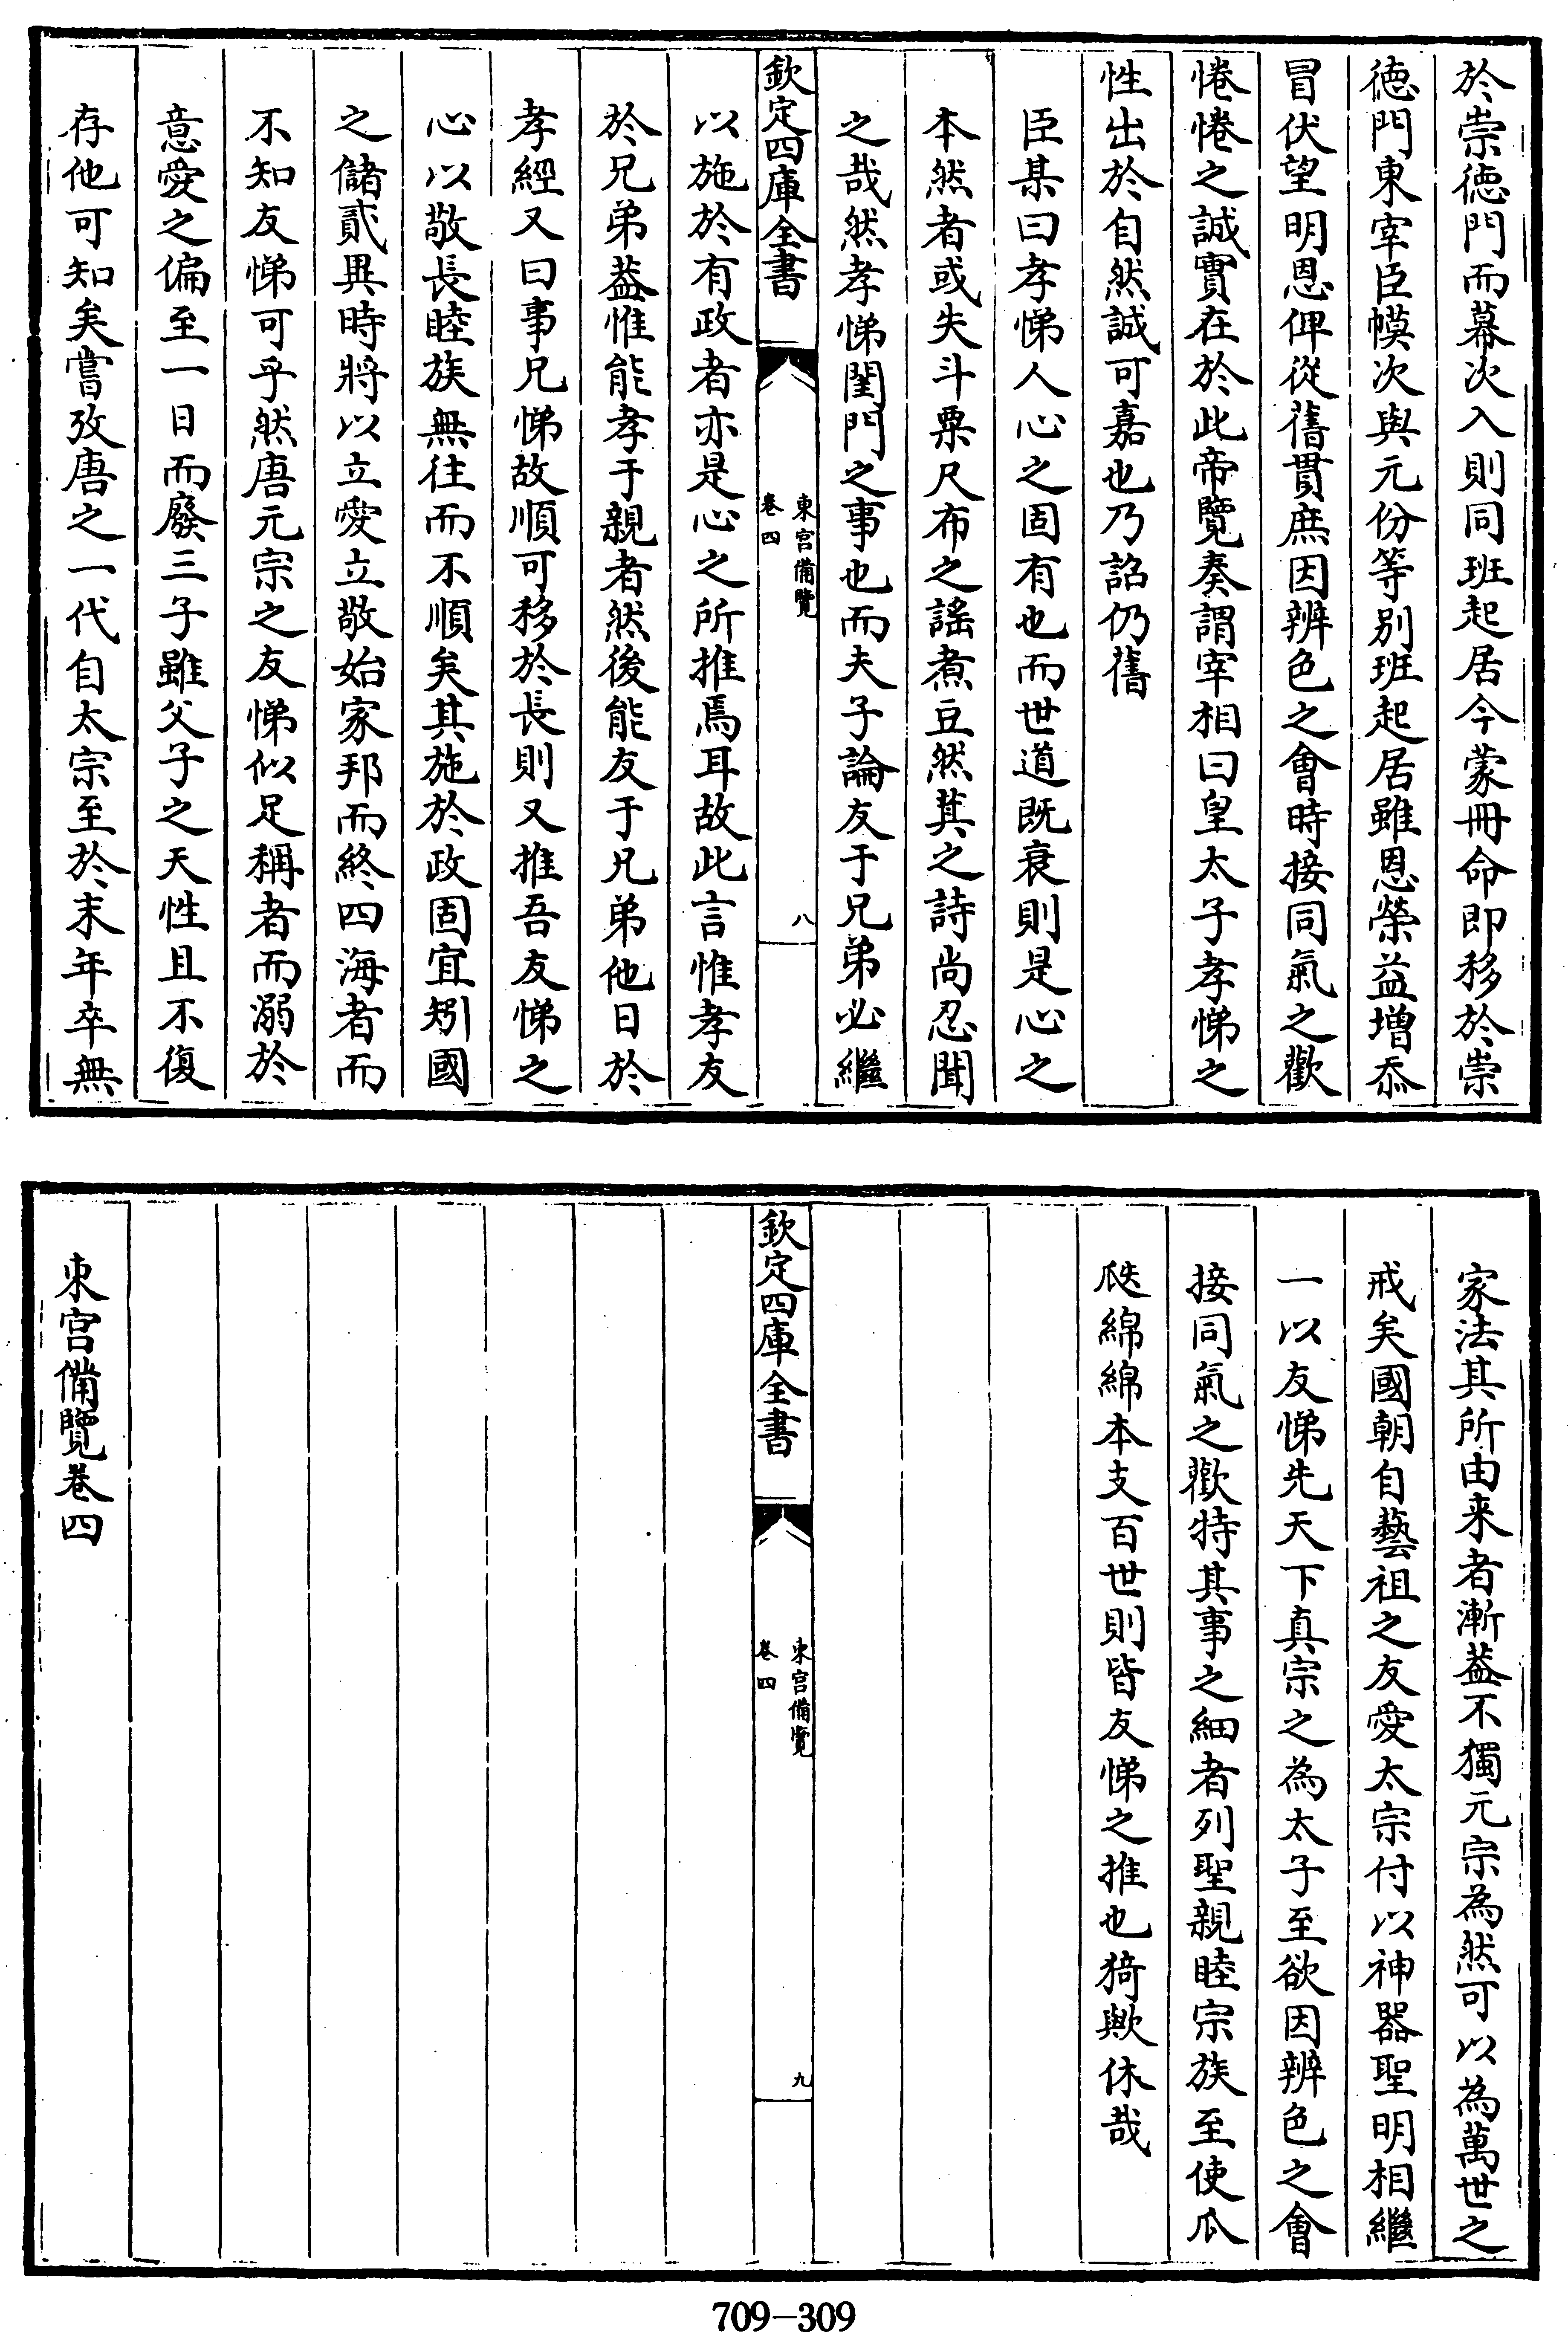 於崇徳門而幕次入則同班起居今蒙冊命即移於崇
徳門東宰臣幙次與元份等別班起居雖恩榮益增忝
冒伏望明恩俾從舊貫庶因辨色之會時接同氣之歡
惓惓之誠實在於此帝覽奏謂宰相曰皇太子孝悌之
性出於自然誠可嘉也乃詔仍舊
臣某曰孝悌人心之固有也而世道既衰則是心之
本然者或失斗粟尺布之謡煮豆然萁之詩尚忍聞
之哉然孝悌閨門之事也而夫子論友于兄弟必繼
欽定四庫全書
東宫備覽
卷四
八
以施於有政者亦是心之所推焉耳故此言惟孝友
於兄弟葢惟能孝于親者然後能友于兄弟他日於
孝經又曰事兄悌故順可移於長則又推吾友悌之
心以敬長睦族無往而不順矣其施於政固宜矧國
之儲貳異時將以立愛立敬始家邦而終四海者而
不知友悌可乎然唐元宗之友悌似足稱者而溺於
意愛之偏至一日而廢三子雖父子之天性且不復
存他可知矣嘗攷唐之一代自太宗至於末年卒無
家法其所由来者漸葢不獨元宗為然可以為萬世之
戒矣國朝自藝祖之友愛太宗付以神器聖明相繼
一以友悌先天下真宗之為太子至欲因辨色之會
接同氣之歡特其事之細者列聖親睦宗族至使瓜
瓞綿綿本支百世則皆友悌之推也猗歟休哉
欽定四庫全書
東宫備覽
卷四
九
東宫備覽卷四
709-309